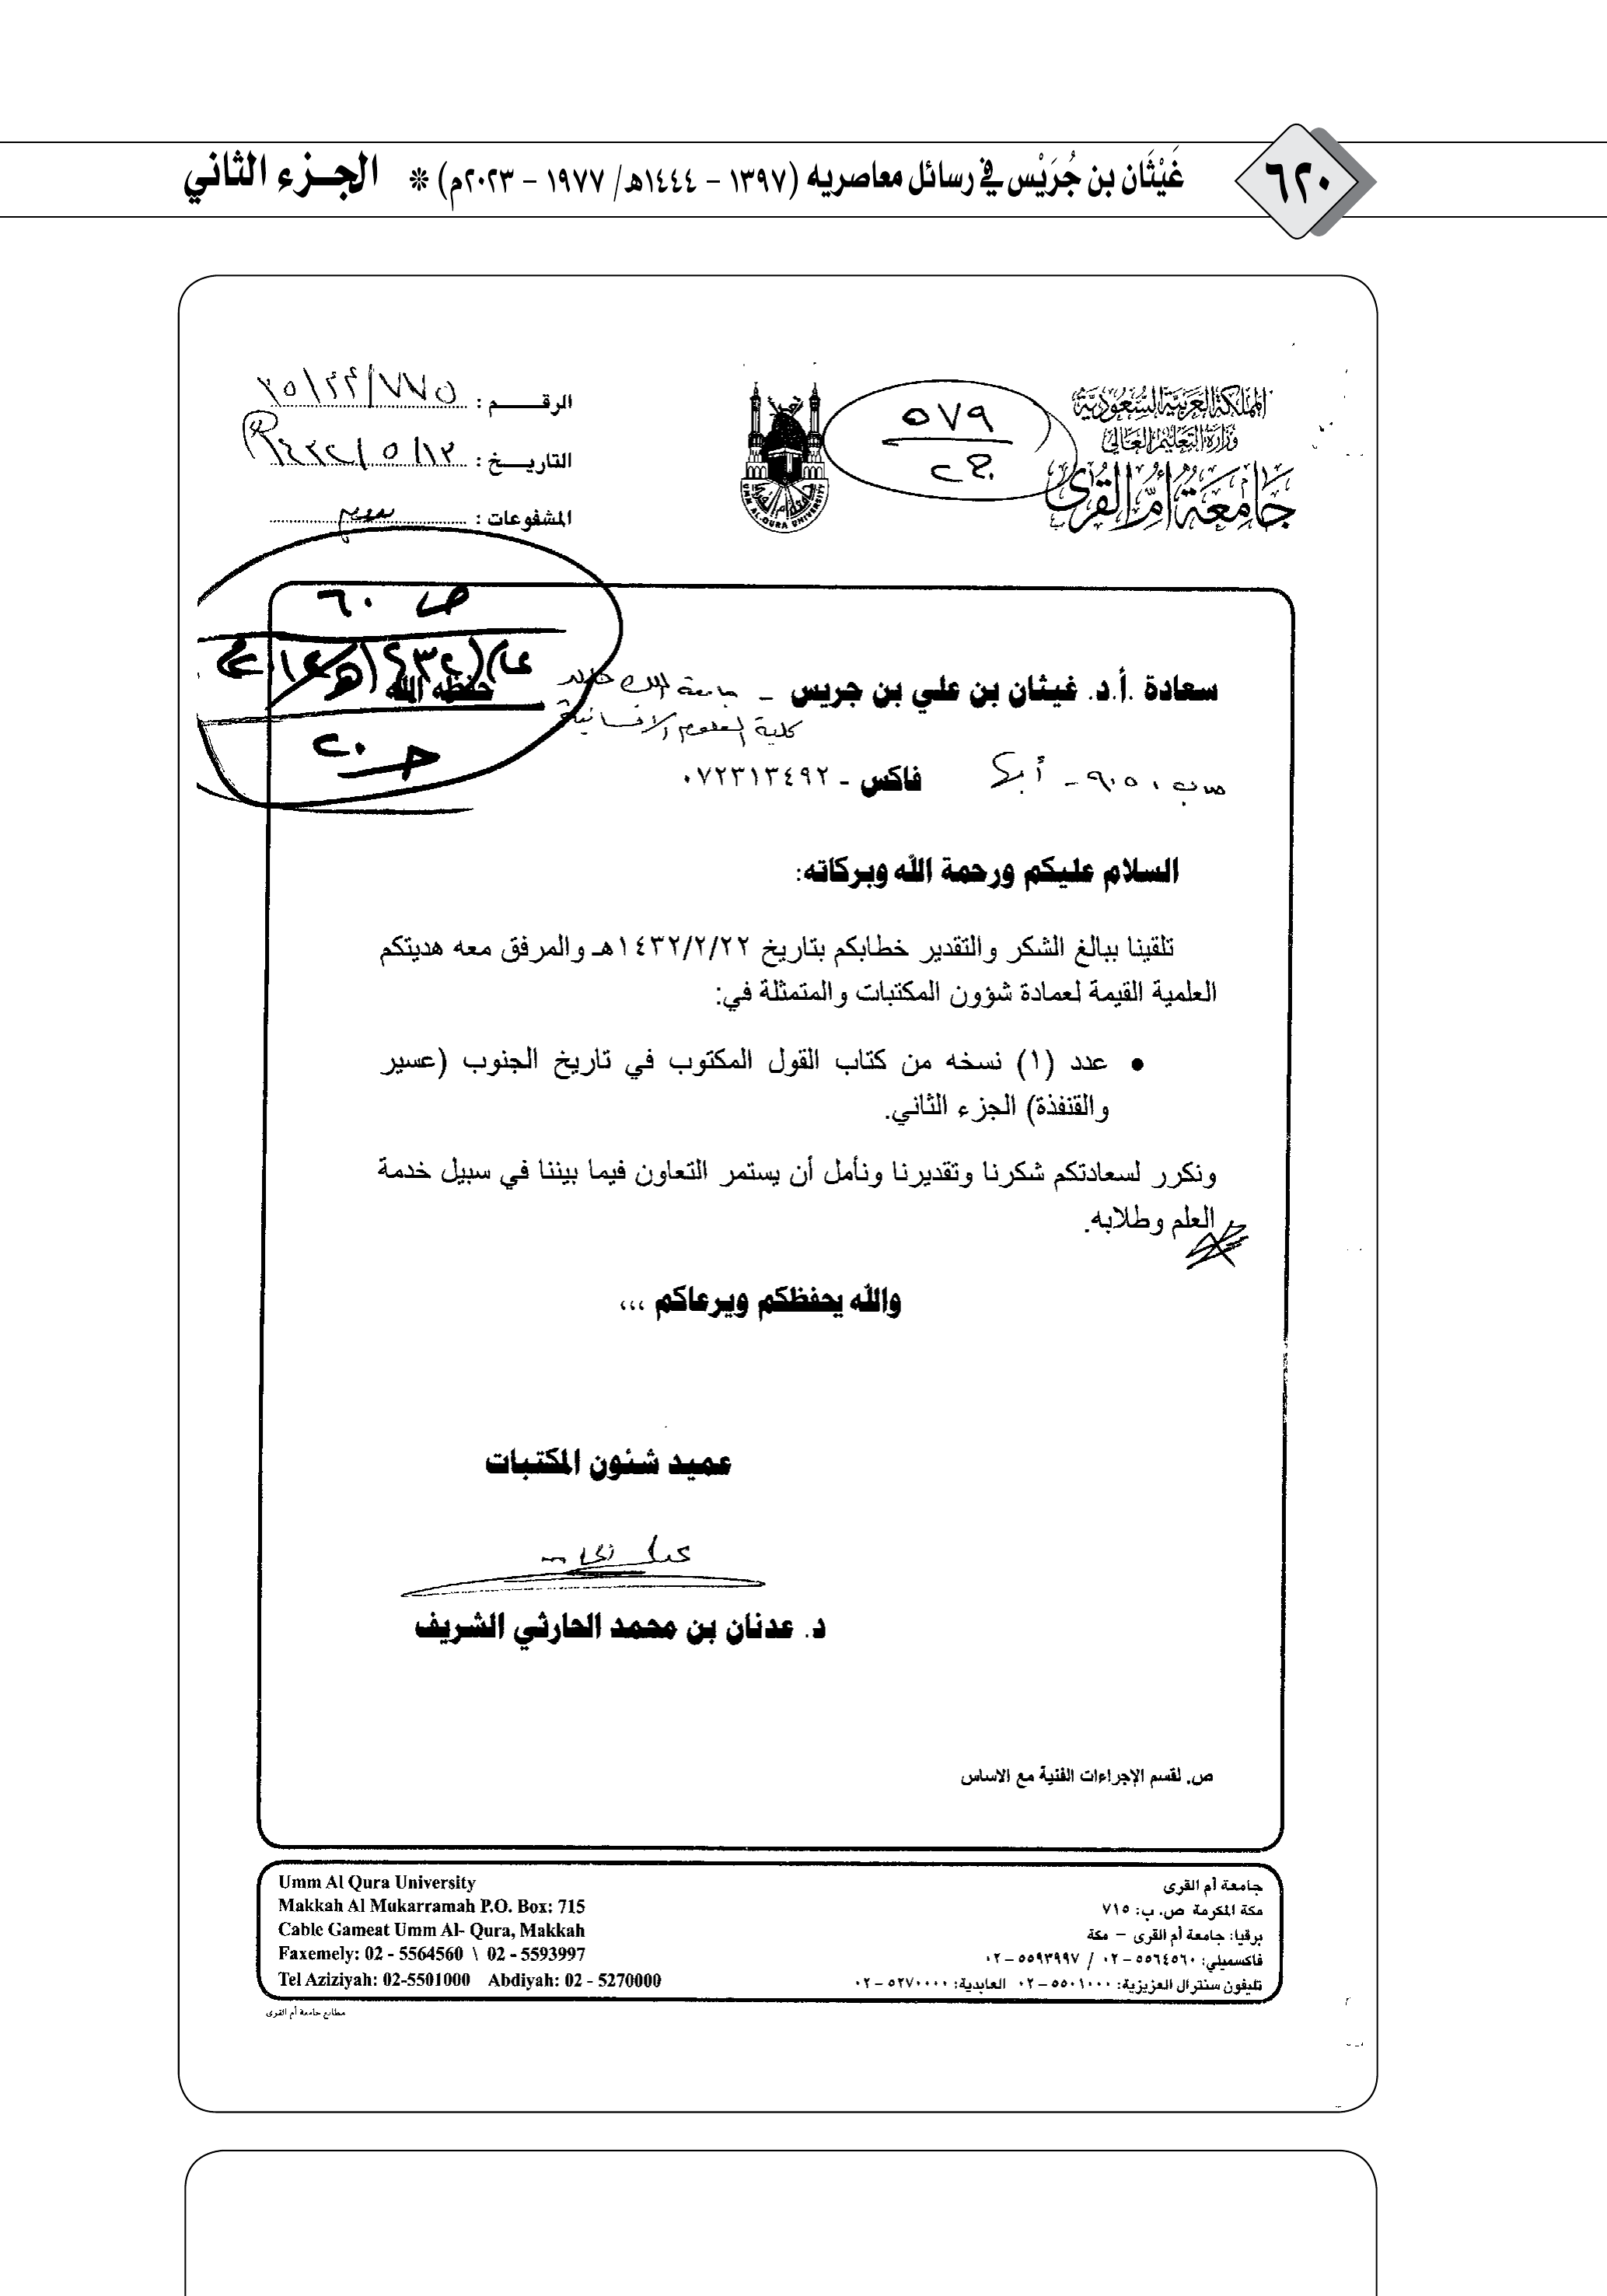 ٦٢٠
غَيْثَان بن جُرَيْس في رسائل معاصريه (١٣٩٧ - ١٤٤٤هـ/ ١٩٧٧ - ٢٠٢٣م) * الجزء الثاني
المملكة العربية السعودية
وزارة التعليم العالي
جامعة أم القرى
٥٧٩
ج٢
UMM AL-QURA UNIVERSITY
الرقم :
التاريخ : ١٤٣٢/٥/١٣
المشفوعات :
ص ٦٠
عام (١٤٣٢هـ)
ج٢٠
سعادة .أ.د. غيثان بن علي بن جريس - جامعة الملك خالد حفظه الله
كلية العلوم الإنسانية
ص ب ٩٠٥٠ - أبها فاكس - ٠٧٢٣١٣٤٩٢
السلام عليكم ورحمة الله وبركاته:
تلقينا ببالغ الشكر والتقدير خطابكم بتاريخ ١٤٣٢/٢/٢٢هـ والمرفق معه هديتكم
العلمية القيمة لعمادة شؤون المكتبات والمتمثلة في:
• عدد (١) نسخه من كتاب القول المكتوب في تاريخ الجنوب (عسير
والقنفذة) الجزء الثاني.
ونكرر لسعادتكم شكرنا وتقديرنا ونأمل أن يستمر التعاون فيما بيننا في سبيل خدمة
العلم وطلابه.
والله يحفظكم ويرعاكم ،،،
عميد شئون المكتبات
د. عدنان بن محمد الحارثي الشريف
ص. لقسم الإجراءات الفنية مع الاساس
جامعة أم القرى
مكة المكرمة ص. ب: ٧١٥
برقيا: جامعة أم القرى - مكة
فاكسميلي: ٥٥٦٤٥٦٠ - ٠٢ / ٥٥٩٣٩٩٧ - ٠٢
تليفون سنترال العزيزية: ٥٥٠١٠٠٠ - ٠٢ العابدية: ٥٢٧٠٠٠٠ - ٠٢
Umm Al Qura University
Makkah Al Mukarramah P.O. Box: 715
Cable Gameat Umm Al- Qura, Makkah
Faxemely: 02 - 5564560 \ 02 - 5593997
Tel Aziziyah: 02-5501000 Abdiyah: 02 - 5270000
مطابع جامعة أم القرى